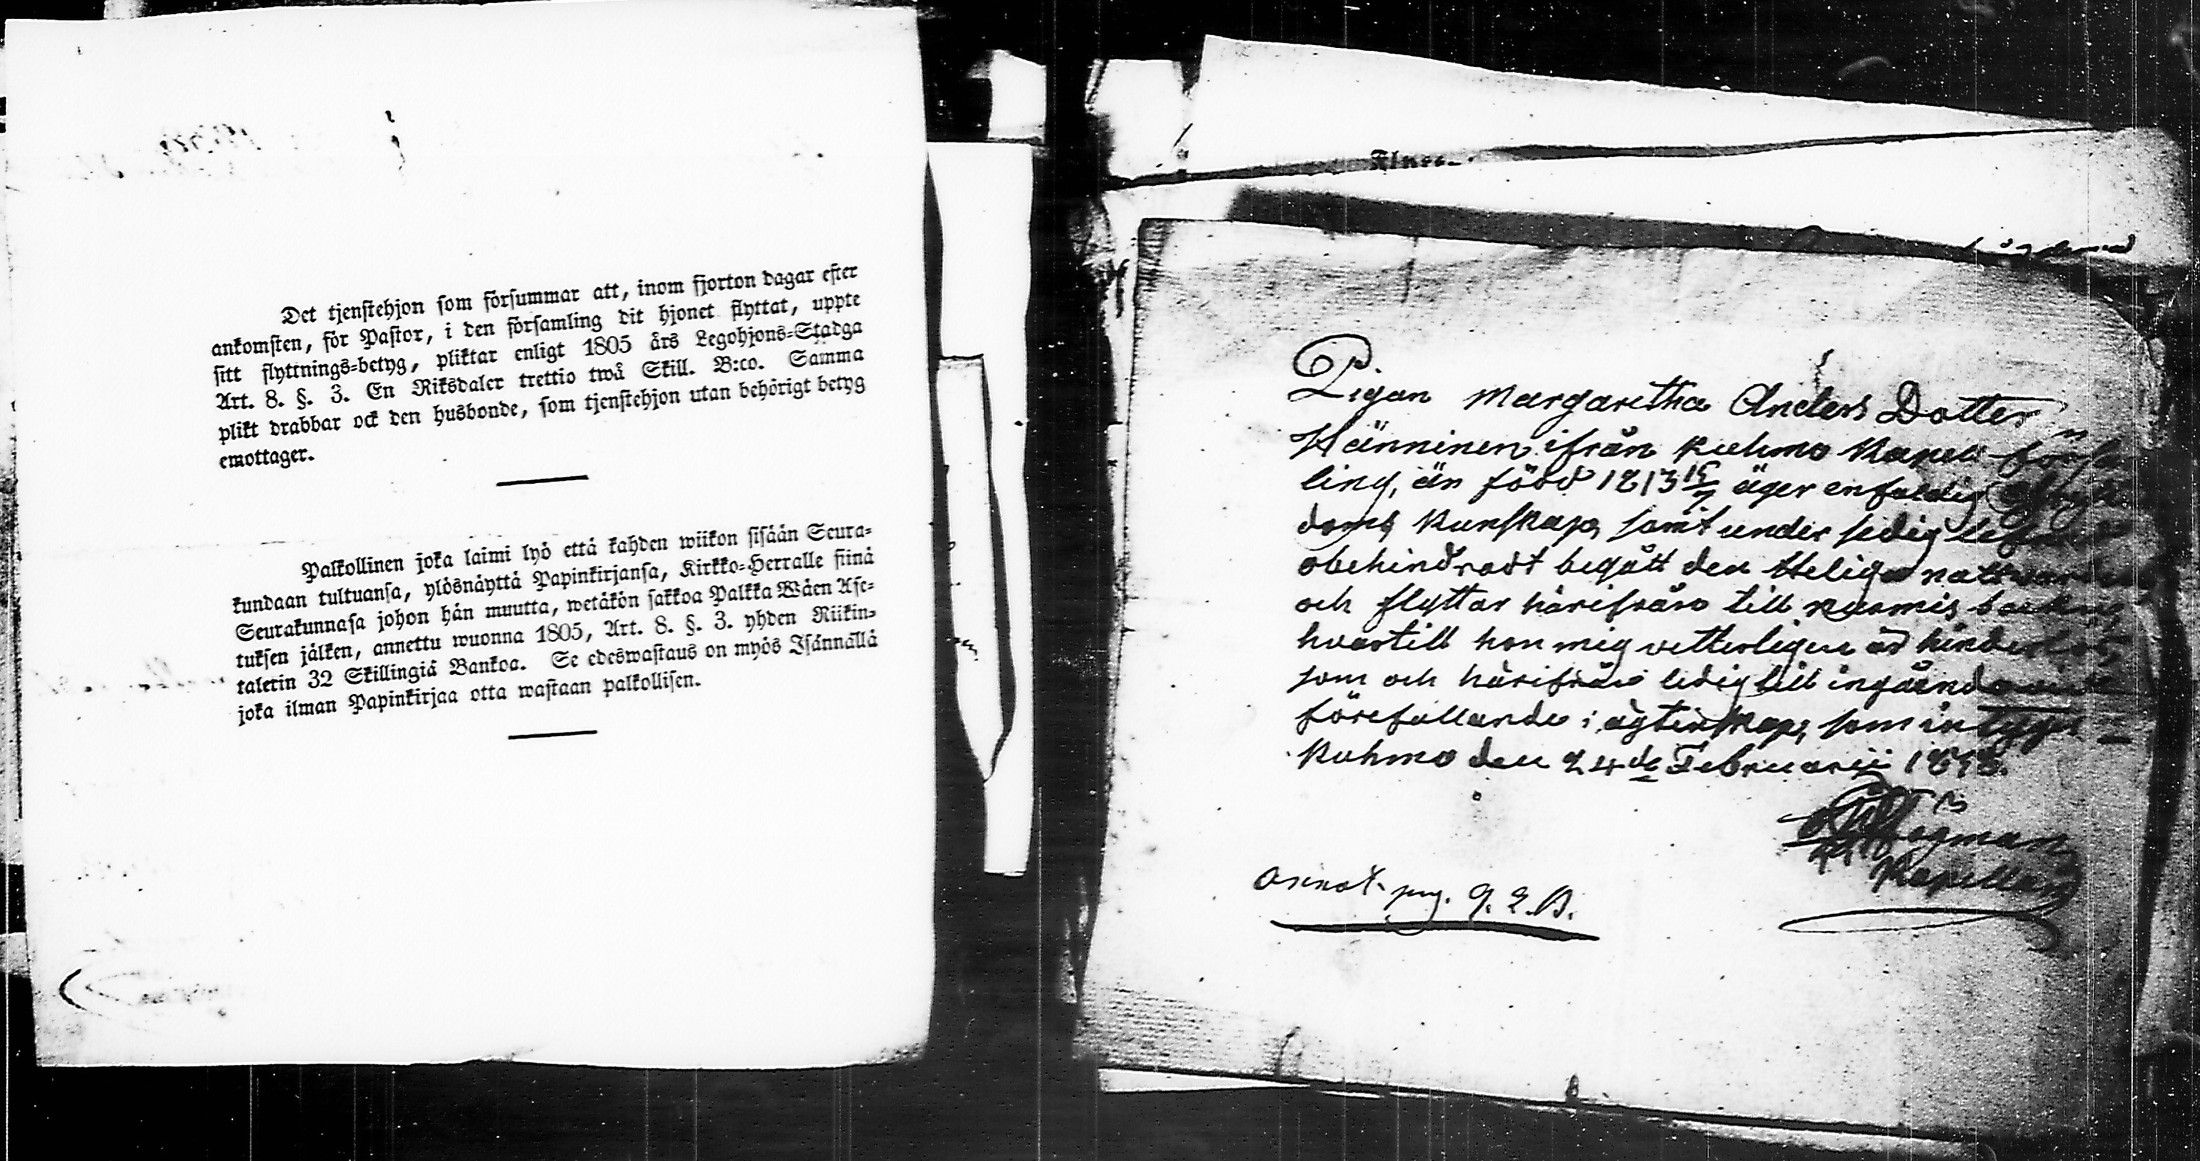 Det tjenstehjon som försummar att, inom fjorton dagar efter
ankomsten, för Pastor, i den församling dit hjonet flyttat, uppte
sitt flyttnings=betyg, pliktar enligt 1805 års Legohjons=Stadga
Art. 8. §. 3. En Riksdaler trettio twå Skill. B:co. Samma
plikt drabbar ock den husbonde, som tjenstehjon utan behörigt betyg
emottager.
Palkollinen joka laimi lyö että kahden wiikon sisään Seura=
kundaan tultuansa, ylösnäyttä Papinkirjansa, Kirkko=Herralle siinä
Seurakunnasa johon hän muutta, wetäkön sakkoa Palkka Wäen Ase=
tuksen jälken, annettu wuonna 1805, Art. 8. §. 3. yhden Riikin=
taletin 32 Skillingiä Bankoa. Se edeswastaus on myös Isännällä
joka ilman Papinkirjaa otta wastaan palkollisen.
Pigan Margaretha Anders Dotter
Hänninen ifrån Kuhmo Kapell förs
ling, är född 1813 15/7 äger enfaldig
doms kunskap, samt under sedig
obehindradt begått den Heliga nattvard
och flyttar härifrån till
hvartill hon mig vetterligen är hinderlös,
som och härifrån ledig till ingående
förefallande ägtenskap, som intygar
Kuhmo den 24de Februarii
Kapellan
annot. pag.